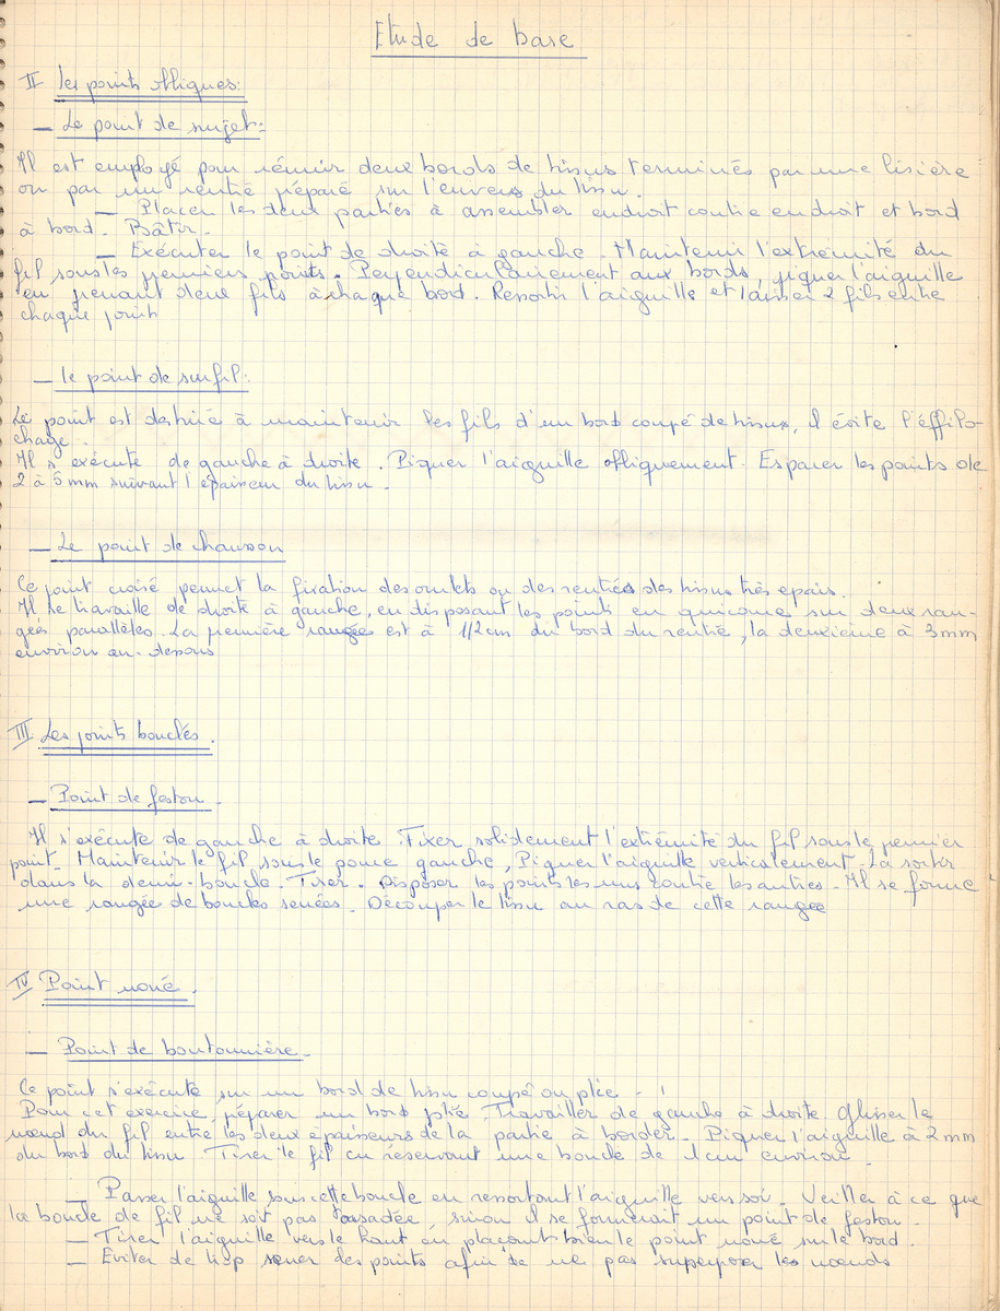 Etude de base
II les points obliques:
— Le point de surjet:
Il est employé pour réunir deux bords de tissus terminés par une lisière
ou par un rentré préparé sur l'envers du tissu.
— Placer les deux parties à assembler endroit contre endroit et bord
à bord. Bâtir.
— Exécuter le point de droite à gauche. Maintenir l'extrémité du
fil sous les premiers points. Perpendiculairement aux bords, piquer l'aiguille
en prenant deux fils à chaque bord. Ressortir l'aiguille et laisser 2 fils entre
chaque point
— le point de surfil:
Le point est destiné à maintenir les fils d'un bord coupé de tissus, il évite l'éffilo-
chage.
Il s'exécute de gauche à droite. Piquer l'aiguille obliquement. Espacer les points de
2 à 5 mm suivant l'épaisseur du tissu.
— Le point de chausson
Ce point croisé permet la fixation des ourlets ou des rentrés des tissus très epais.
Il se travaille de droite à gauche, en disposant les points en quiconce sur deux ran-
gées parallèles. La première rangée est à 1/2 cm du bord du rentré, la deuxième à 3 mm
environ au-dessous
III Les points bouclés.
— Point de feston.
Il s'exécute de gauche à droite. Fixer solidement l'extrémité du fil sous le premier
point. Maintenir le fil sous le pouce gauche, Piquer l'aiguille verticalement. La sortir
dans la demi-boucle. Tirer. Disposer les points les uns contre les autres. Il se forme
une rangée de boucles serrées. Découper le tissu au ras de cette rangée
IV Point noué.
— Point de boutonnière.
Ce point s'exécute sur un bord de tissu coupé ou plié.
Pour cet exercice, préparer un bord plié. Travailler de gauche à droite. Glisser le
nœud du fil entre les deux épaisseurs de la partie à border. Piquer l'aiguille à 2 mm
du bord du tissu. Tirer le fil en réservant une boucle de 1 cm environ.
— Passer l'aiguille sous cette boucle en ressortant l'aiguille vers soi. Veiller à ce que
la boucle de fil ne soit pas, sinon il se formerait un point de feston.
— Tirer l'aiguille vers le haut en plaçant bien le point noué sur le bord.
— Eviter de trop serrer les points afin de ne pas superposer les nœuds